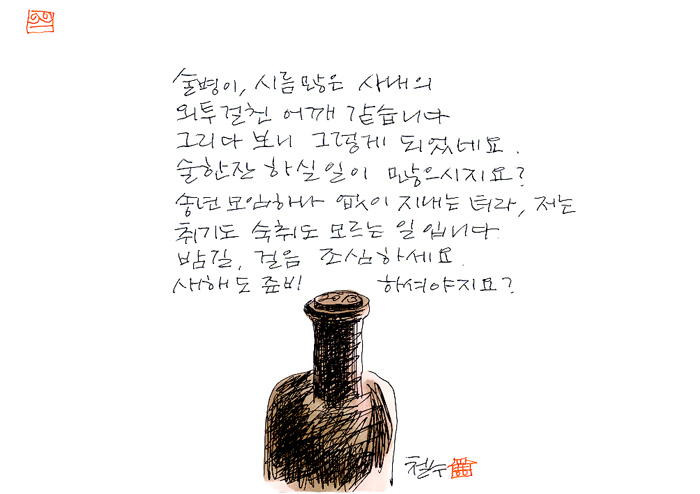 술병이, 시름많은 사내의
외투걸친 어깨 같습니다
그리다 보니 그렇게 되었네요.
술한잔 하실일이 많으시지요?
송년모임하나 없이 지내는 터라, 저는
취기도 숙취도 모르는 일입니다.
밤길, 걸음 조심하세요.
새해도 준비 하셔야지요?
철수